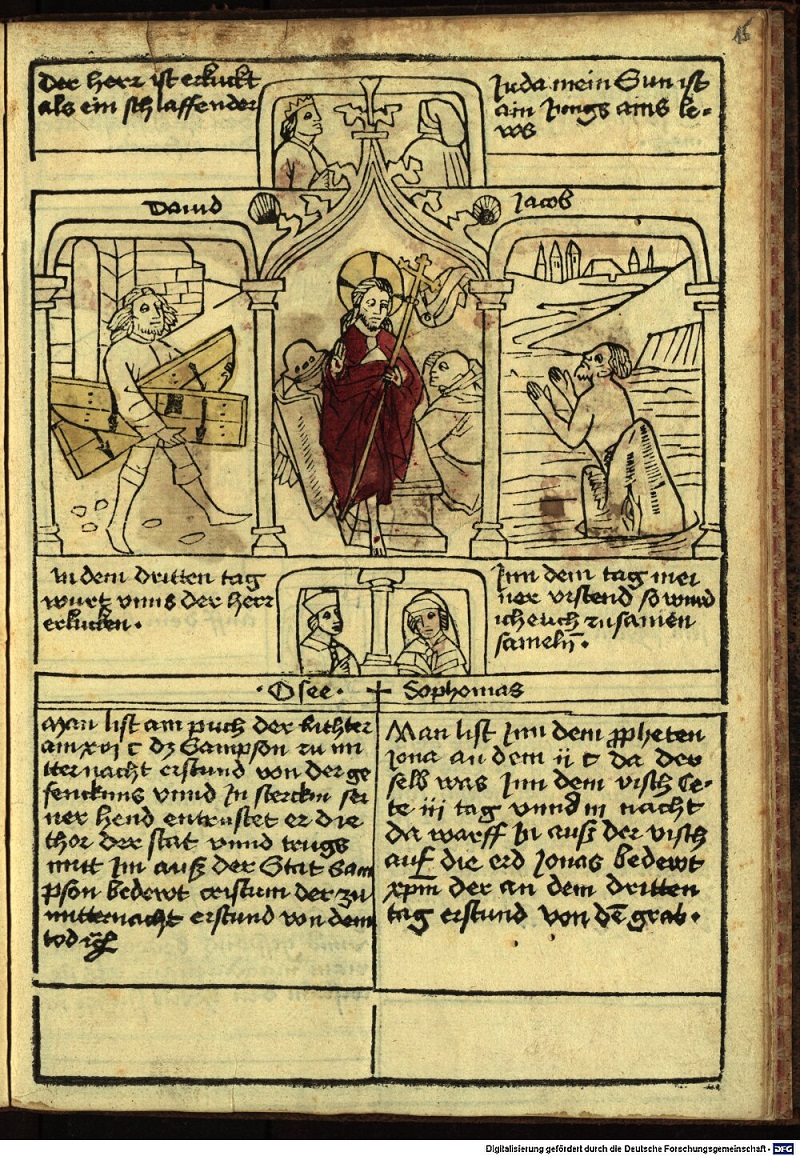 15
Der herr ist erkuckt
als ein schlaffender
Juda mein Sun ist
ain Jungs ains le=
ws
Dauid
Jacob
In dem dritten tag
wurt vnns der herr
erkucken.
Inn dem tag mei
ner vrstend so wurd
ich euch zusamen
samelñ.
Osee. + Sophonias
Man list am puch der Richter
am xvi c dz Sampson zu mi
tternacht erstund von der ge
fencknus vnnd In sterckin sei
ner hend entrüstet er die
thor der stat vnnd trugs
mitt Im auß der Stat Sam
pson bedewt cristum der zu
mitternacht erstund von dem
tod
Man list Inn dem ppheten
Jona an dem ii c da der
selb was Inn dem visch Ce=
te iii tag vnnd iii nacht
da warff In auß der visch
auf die erd Jonas bedewt
xpm̄ der an dem dritten
tag erstund von dē grab.
Digitalisierung gefördert durch die Deutsche Forschungsgemeinschaft - DFG